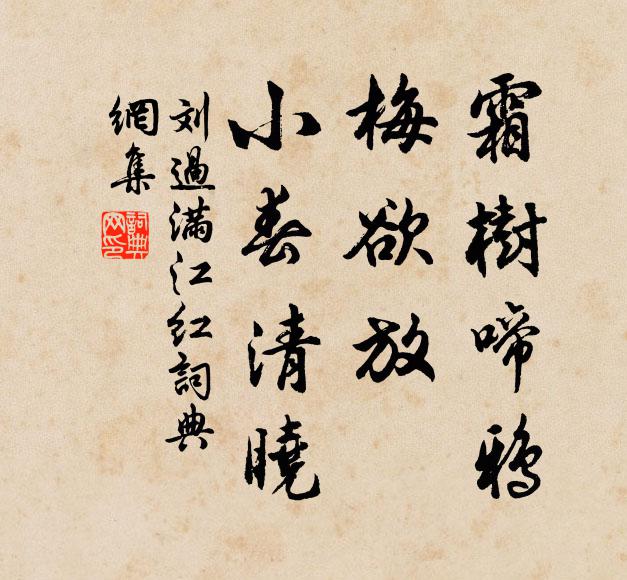 霜樹啼鴉
梅欲放
小春清曉
刘過滿江红詞典
網集
詞典网印